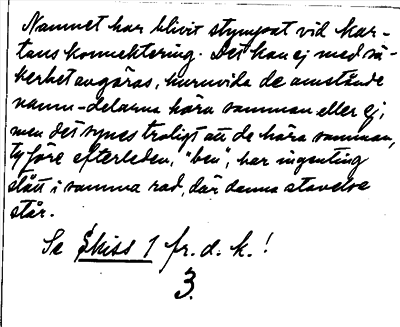 Namnet har blivit stympat vid kar-
tans konnektering. Det kan ej med sä-
kerhet avgöras, huruvida de omstående
namn-delarna höra samman eller ej,
men det synes troligt att de höra samman,
ty före efterleden, "ben", har ingenting
stått i samma rad, där denna stavelse
står.
Se Skiss 1 fr. d. k.!
3.